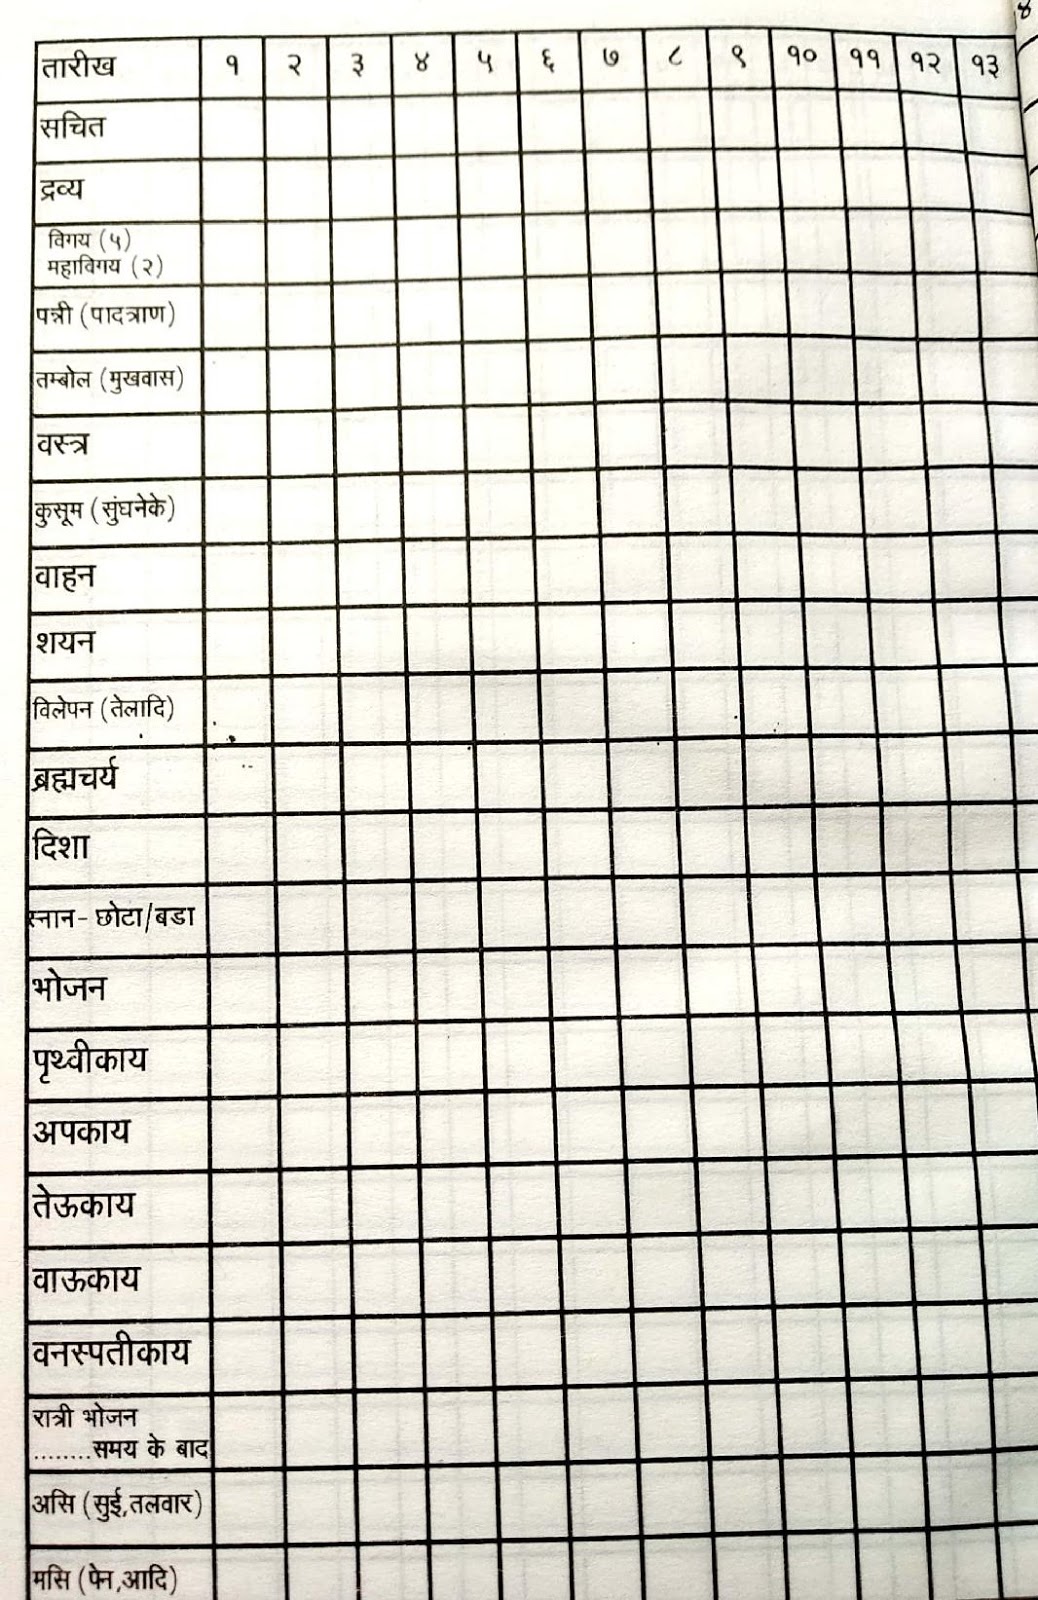 तारीख १ २ ३ ४ ५ ६ ७ ८ ९ १० ११ १२ १३
सचित
द्रव्य
विगय (५)
महाविगय (२)
पन्नी (पादत्राण)
तम्बोल (मुखवास)
वस्त्र
कुसूम (सुंघनेके)
वाहन
शयन
विलेपन (तेलादि)
ब्रह्मचर्य
दिशा
स्नान- छोटा/बडा
भोजन
पृथ्वीकाय
अपकाय
तेऊकाय
वाऊकाय
वनस्पतीकाय
रात्री भोजन
........समय के बाद
असि (सुई,तलवार)
मसि (पेन,आदि)